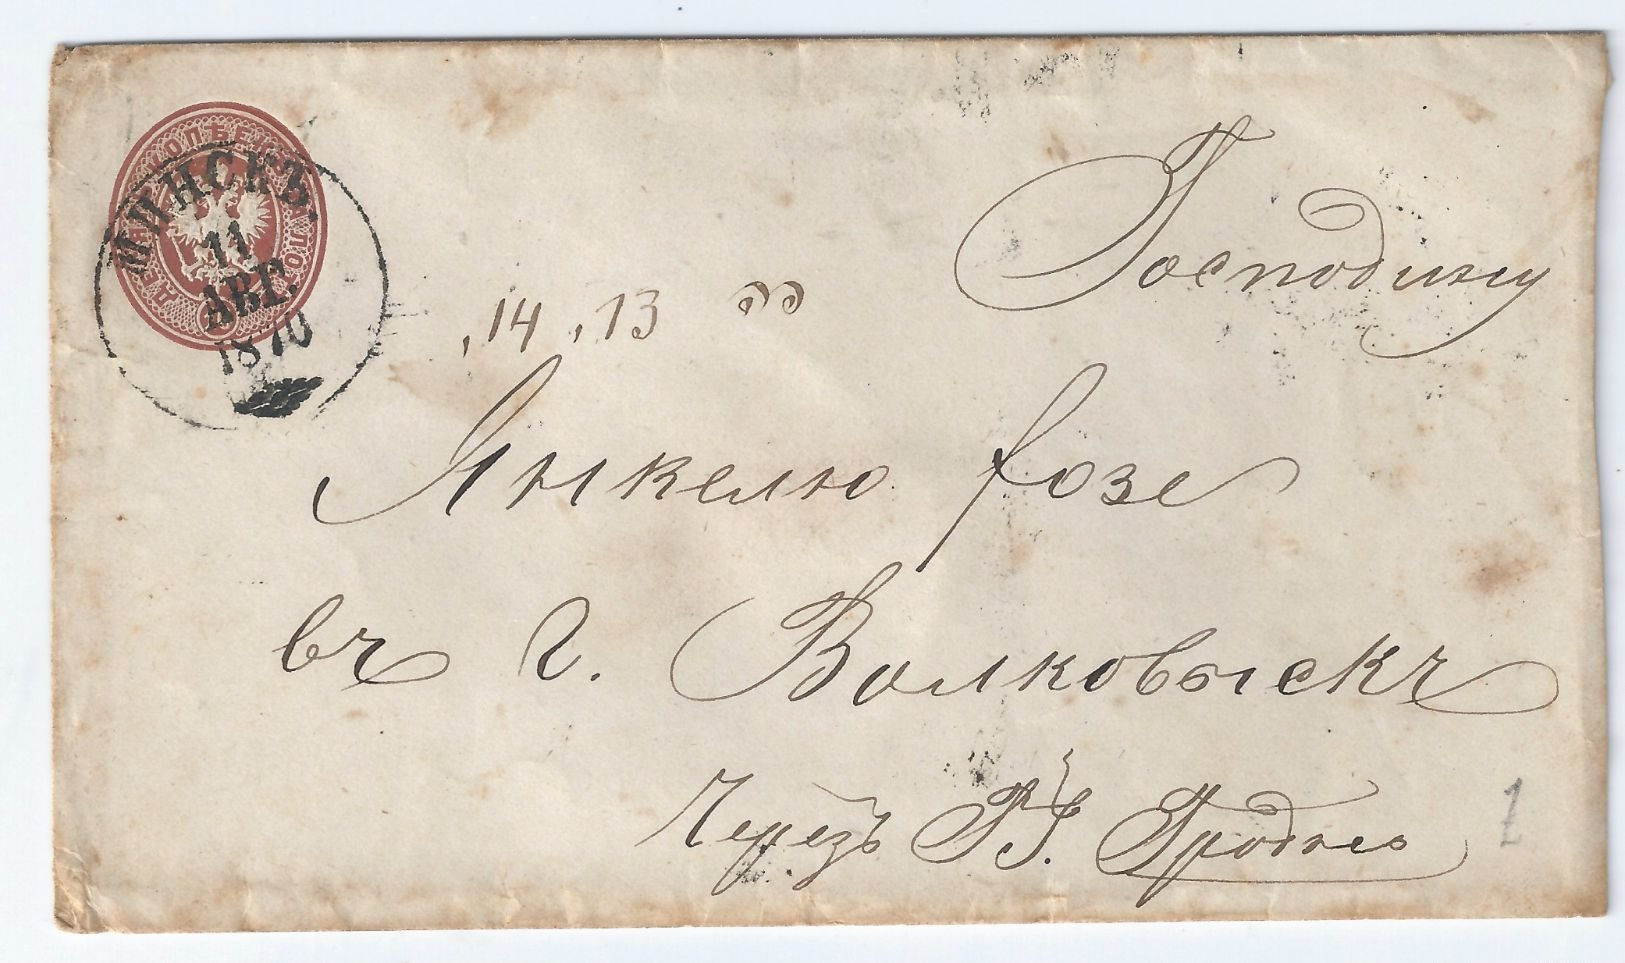 МИНСКЪ.
11
АВГ.
1870
14 13
Господину
Янкелю Розе
въ г. Волковыскъ
Черезъ Г. Гродно
1